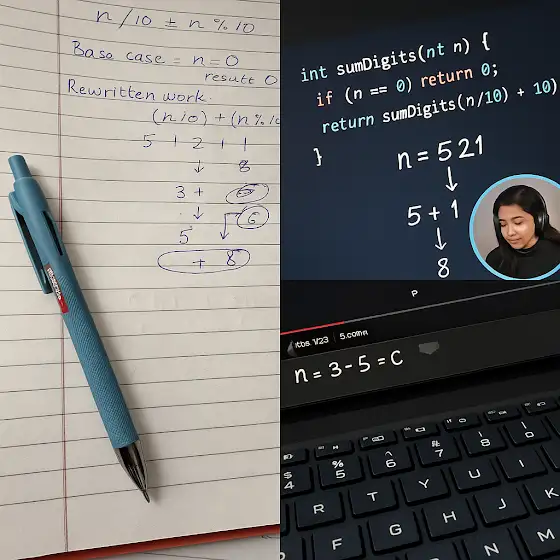 n/10 ± n % 10
Base case = n=0
resutt 0
Rewritten work.
(n10) + (n % 10
5 1 2 1 1
↓ 8
3 +
↓ 6
5
+ 8
int sumDigits(nt n) {
if (n == 0) return 0;
return sumDigits(n/10) + 10)
}
n = 521
↓
5 + 1
↓
8
P
5.com
n = 3 - 5 = C
$
4
%
5
^
6
7
8
R T Y U I
F G H J